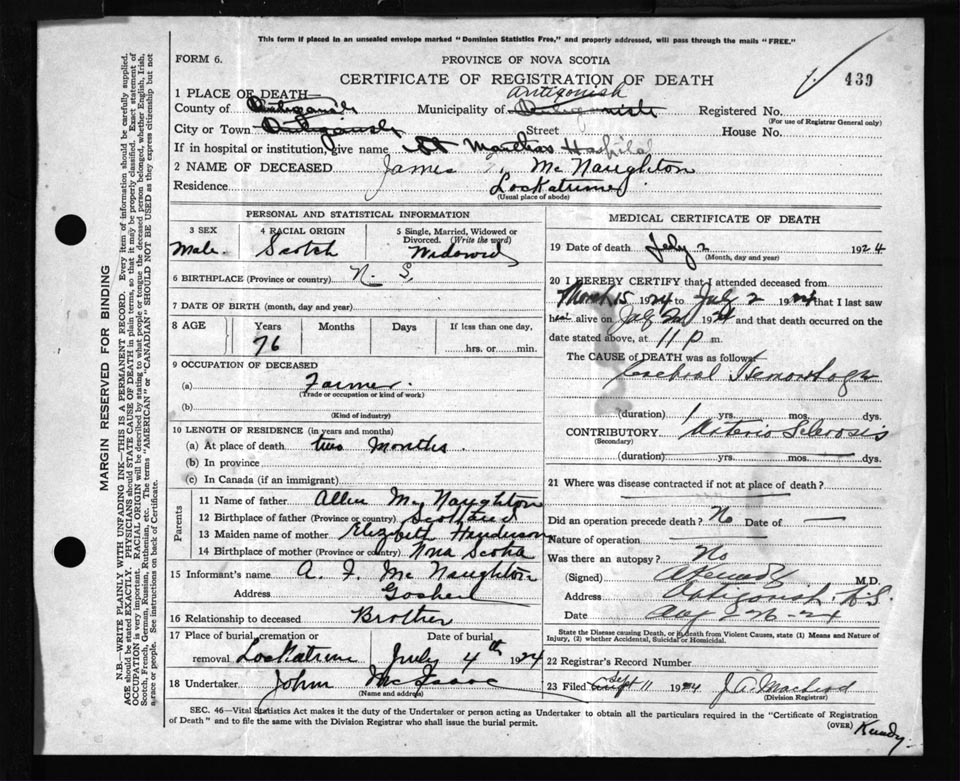 This form if placed in an unsealed envelope marked "Dominion Statistics Free," and properly addressed, will pass through the mails "FREE."
FORM 6.
PROVINCE OF NOVA SCOTIA
CERTIFICATE OF REGISTRATION OF DEATH
439
1 PLACE OF DEATH— Antigonish
County of Antigonish Municipality of Antigonish Registered No.
(For use of Registrar General only)
City or Town Antigonish Street House No.
If in hospital or institution, give name St Marthas Hospital
2 NAME OF DECEASED James Mc Naughton
Residence Lockatrime
(Usual place of abode)
PERSONAL AND STATISTICAL INFORMATION
3 SEX 4 RACIAL ORIGIN 5 Single, Married, Widowed or Divorced. (Write the word)
Male Scotch Widowed
6 BIRTHPLACE (Province or country) N. S.
7 DATE OF BIRTH (month, day and year)
8 AGE Years Months Days If less than one day,
76 hrs. or min.
9 OCCUPATION OF DECEASED
(a) Farmer.
(Trade or occupation or kind of work)
(b)
(Kind of industry)
10 LENGTH OF RESIDENCE (in years and months)
(a) At place of death two months.
(b) In province
(c) In Canada (if an immigrant)
Parents
11 Name of father Allen Mc Naughton
12 Birthplace of father (Province or country) Scotland
13 Maiden name of mother Elizabeth Henderson
14 Birthplace of mother (Province or country) Nova Scotia
15 Informant's name A. F. Mc Naughton
Address Goshen
16 Relationship to deceased Brother
17 Place of burial, cremation or Date of burial
removal Lockatrim July 4th 1924
18 Undertaker John McIsaac
(Name and address)
MEDICAL CERTIFICATE OF DEATH
19 Date of death July 2 1924
(Month, day and year)
20 I HEREBY CERTIFY that I attended deceased from
March 15 1924 to July 2 1924 that I last saw
him alive on July 2nd 1924 and that death occurred on the
date stated above, at 11 P m.
The CAUSE of DEATH was as follows:
Cerebral Hemorrhage
(duration) 1 yrs. mos. dys.
CONTRIBUTORY Arterio Sclerosis
(Secondary)
(duration) yrs. mos. dys.
21 Where was disease contracted if not at place of death?
Did an operation precede death? No Date of —
Nature of operation
Was there an autopsy? No
(Signed) M.D.
Address Antigonish N.S.
Date Aug 26-24
State the Disease causing Death, or in death from Violent Causes, state (1) Means and Nature of
Injury, (2) whether Accidental, Suicidal or Homicidal.
22 Registrar's Record Number
23 Filed Sept 11 1924 J. A. Macleod
(Division Registrar)
SEC. 46—Vital Statistics Act makes it the duty of the Undertaker or person acting as Undertaker to obtain all the particulars required in the "Certificate of Registration
of Death" and to file the same with the Division Registrar who shall issue the burial permit.
(OVER)
MARGIN RESERVED FOR BINDING
N.B.—WRITE PLAINLY WITH UNFADING INK—THIS IS A PERMANENT RECORD. Every item of information should be carefully supplied.
AGE should be stated EXACTLY. PHYSICIANS should STATE CAUSE OF DEATH in plain terms, so that it may be properly classified. Exact statement of
OCCUPATION is very important. RACIAL ORIGIN will be described by stating to what people or tongue the deceased person belonged, whether English, Irish,
Scotch, French, German, Russian, Ruthenian, etc. The terms "AMERICAN" or "CANADIAN" SHOULD NOT BE USED as they express citizenship but not
a race or people. See instructions on back of Certificate.